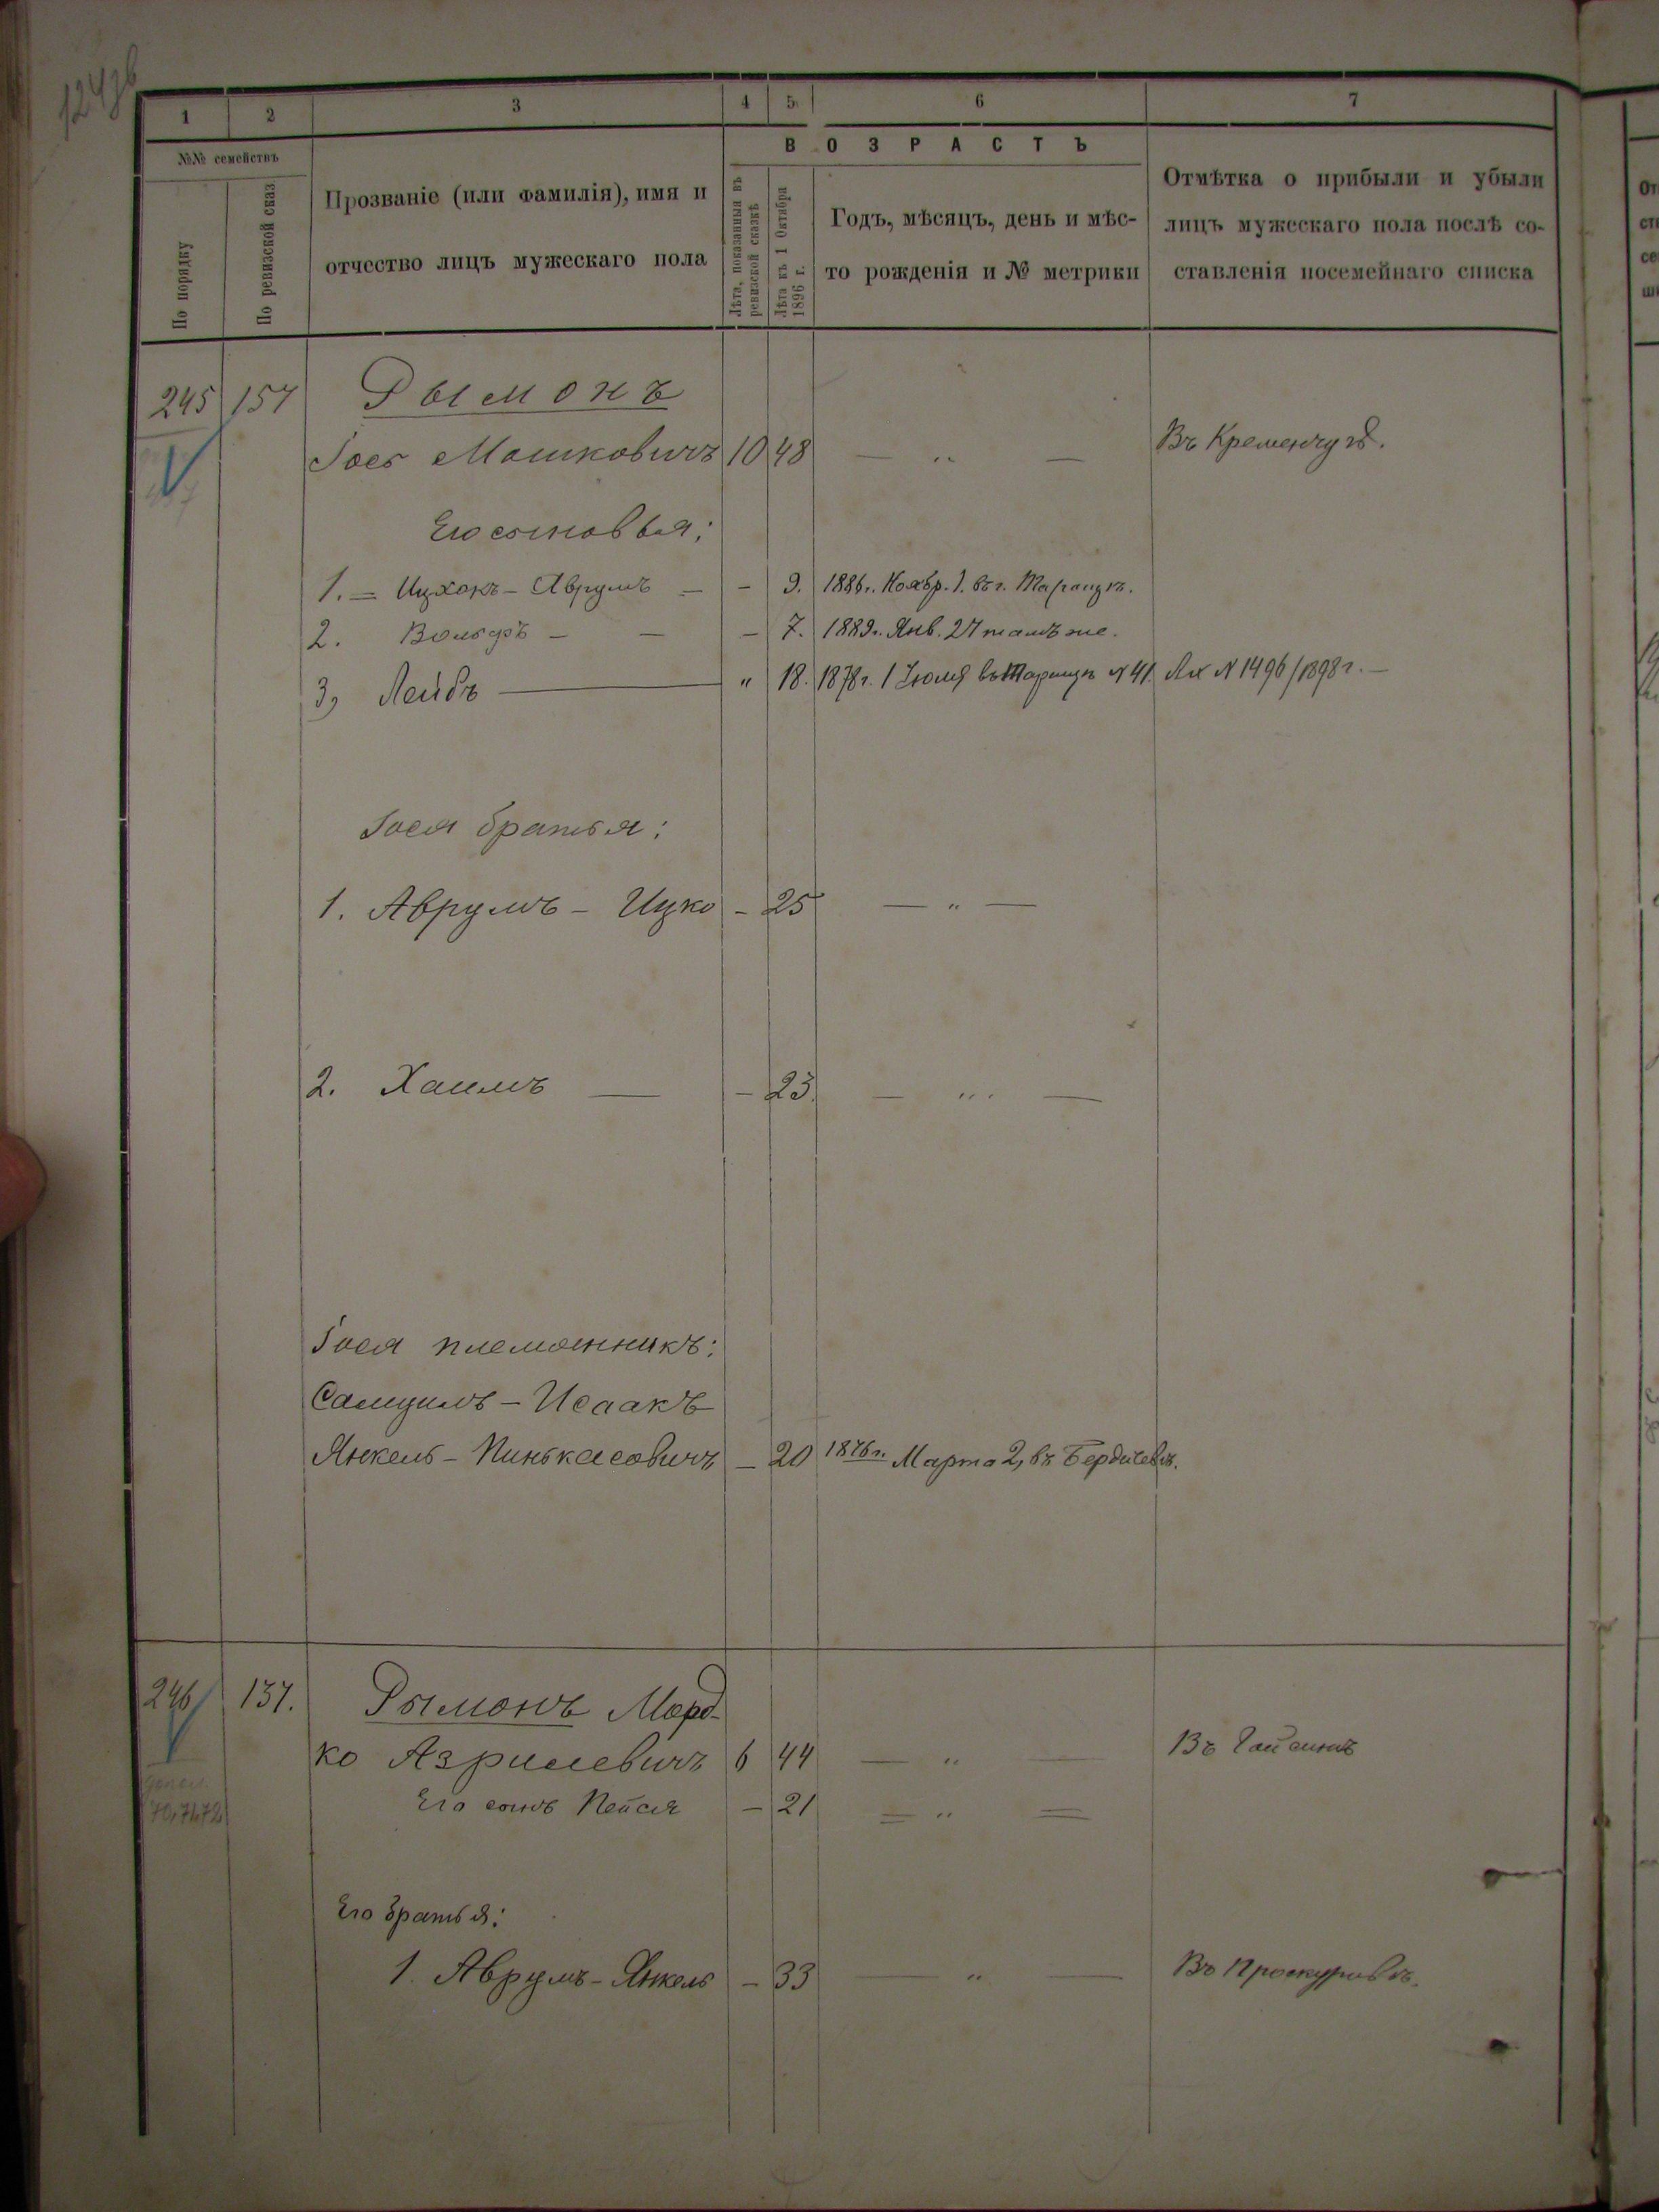 1 2 3 4 5 6 7
№№ семействъ
По порядку
По ревизской сказ.
Прозваніе (или фамилія), имя и
отчество лицъ мужескаго пола
ВОЗРАСТЪ
Лѣта, показанныя въ
ревизской сказкѣ
Лѣта къ 1 Октября
1896 г.
Годъ, мѣсяцъ, день и мѣс-
то рожденія и № метрики
Отмѣтка о прибыли и убыли
лицъ мужескаго пола послѣ со-
ставленія посемейнаго списка
245 157 Рымонъ
Іось Мошковичъ 10 48 — „ — Въ Кременчугѣ.
Его сыновья:
1. = Ицхокъ - Аврумъ — - 9. 1886 г. Ноябр. 1. въ г. Таращѣ.
2. Вольфъ - — - 7. 1889 г. Янв. 27 тамъ же.
3, Лейбъ — " 18. 1878 г. 1 Іюля въ Таращѣ № 41. № 1496/1898 г. —
Іося братья:
1. Аврумъ - Ицко - 25 — „ —
2. Хаимъ — - 23. — „ —
Іося племянникъ:
Самуилъ - Исаакъ
Янкель - Пинькасовичъ - 20 1876 г. Марта 2, въ Бердичевѣ.
246 137. Рымонъ Морд-
ко Азрилевичъ 6 44 — „ — Въ Гайсинѣ
допол.
70,71,72
Его сынъ Пейся - 21 = „ =
Его братья:
1. Аврумъ - Янкель - 33 — „ — Въ Проскуровѣ.